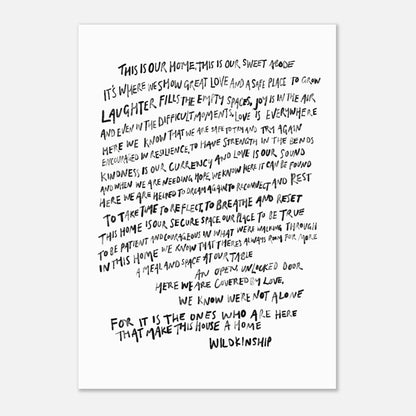 THIS IS OUR HOME, THIS IS OUR SWEET ABODE
IT'S WHERE WE SHOW GREAT LOVE AND A SAFE PLACE TO GROW
LAUGHTER FILLS THE EMPTY SPACES, JOY IS IN THE AIR
AND EVEN IN THE DIFFICULT MOMENTS, LOVE IS EVERYWHERE
HERE WE KNOW THAT WE ARE SAFE TO TRY AND TRY AGAIN
ENCOURAGED IN RESILIENCE, TO HAVE STRENGTH IN THE BENDS
KINDNESS IS OUR CURRENCY AND LOVE IS OUR SOUND
AND WHEN WE ARE NEEDING HOPE, WE KNOW HERE IT CAN BE FOUND
HERE WE ARE HELPED TO DREAM AGAIN TO RECONNECT AND REST
TO TAKE TIME TO REFLECT, TO BREATHE AND RESET
THIS HOME IS OUR SECURE SPACE, OUR PLACE TO BE TRUE
TO BE PATIENT AND COURAGEOUS IN WHAT WE'RE WALKING THROUGH
IN THIS HOME WE KNOW THAT THERE'S ALWAYS ROOM FOR MORE
A MEAL AND SPACE AT OUR TABLE
AN OPEN UNLOCKED DOOR
HERE WE ARE COVERED BY LOVE,
WE KNOW WE'RE NOT ALONE
FOR IT IS THE ONES WHO ARE HERE
THAT MAKE THIS HOUSE A HOME
WILDKINSHIP